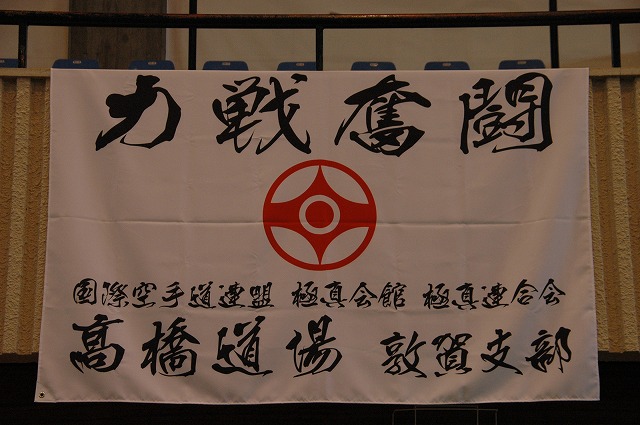 力戦奮闘
国際空手道連盟 極真会館 極真連合会
高橋道場 敦賀支部